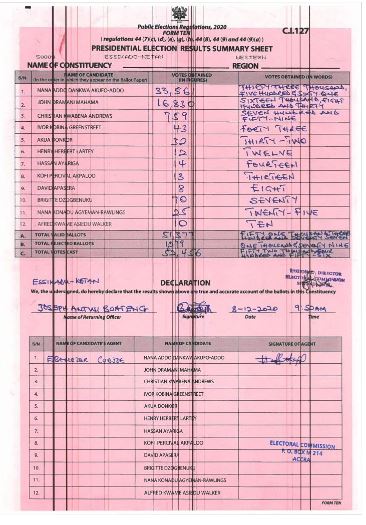 Public Elections Regulations, 2020
FORM TEN
C.I.127
PRESIDENTIAL ELECTION RESULTS SUMMARY SHEET
ESSIKADU-KETAN
WESTERN
NAME OF CONSTITUENCY
REGION
S/N NAME OF CANDIDATE VOTES OBTAINED VOTES OBTAINED (IN WORDS)
(In the order in which they appear on the Ballot Paper) (IN FIGURES)
1. NANA ADDO DANKWA AKUFO-ADDO 33,561 THIRTY THREE THOUSAND, FIVE HUNDRED & SIXTY ONE
2. JOHN DRAMANI MAHAMA 16,830 SIXTEEN THOUSAND, EIGHT HUNDRED AND THIRTY
3. CHRISTIAN KWABENA ANDREWS 759 SEVEN HUNDRED AND FIFTY-NINE
4. IVOR KOBINA GREENSTREET 43 FORTY THREE
5. AKUA DONKOR 32 THIRTY-TWO
6. HENRY HERBERT LARTEY 12 TWELVE
7. HASSAN AYARIGA 14 FOURTEEN
8. KOFI PERCIVAL AKPALOO 13 THIRTEEN
9. DAVID APASERA 8 EIGHT
10. BRIGITTE DZOGBENUKU 70 SEVENTY
11. NANA KONADU AGYEMAN-RAWLINGS 25 TWENTY-FIVE
12. ALFRED KWAME ASIEDU WALKER 10 TEN
A. TOTAL VALID BALLOTS 51,377
B. TOTAL REJECTED BALLOTS 1079 ONE THOUSAND, SEVENTY NINE
C. TOTAL VOTES CAST 52,456 FIFTY TWO THOUSAND, FOUR HUNDRED AND FIFTY-SIX
ESSIKADU-KETAN
DECLARATION
We, the undersigned, do hereby declare that the results shown above are true and accurate account of the ballots in this Constituency
JOSEPH ANTWI BOATENG 8-12-2020 9:50AM
Name of Returning Officer Signature Date Time
S/N NAME OF CANDIDATE'S AGENT NAME OF CANDIDATE SIGNATURE OF AGENT
1. EBENEZER NANA ADDO DANKWA AKUFO-ADDO
2. JOHN DRAMANI MAHAMA
3. CHRISTIAN KWABENA ANDREWS
4. IVOR KOBINA GREENSTREET
5. AKUA DONKOR
6. HENRY HERBERT LARTEY
7. HASSAN AYARIGA
8. KOFI PERCIVAL AKPALOO
9. DAVID APASERA
10. BRIGITTE DZOGBENUKU
11. NANA KONADU AGYEMAN-RAWLINGS
12. ALFRED KWAME ASIEDU WALKER
ELECTORAL COMMISSION
P. O. BOX M 214
ACCRA
FORM TEN